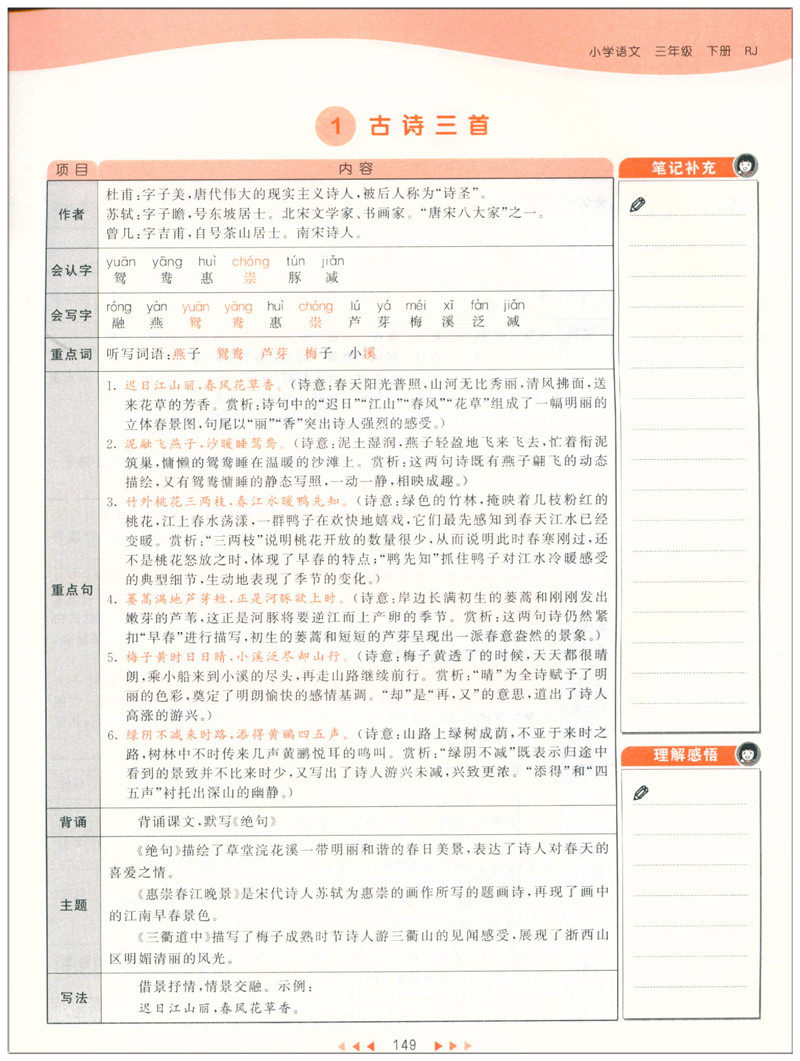 小学语文 三年级 下册 RJ
1 古诗三首
项目 内容
作者
杜甫:字子美,唐代伟大的现实主义诗人,被后人称为“诗圣”。
苏轼:字子瞻,号东坡居士。北宋文学家、书画家。“唐宋八大家”之一。
曾几:字吉甫,自号茶山居士。南宋诗人。
会认字
yuān yāng huì chóng tún jiǎn
鸳 鸯 惠 崇 豚 减
会写字
róng yàn yuān yāng huì chóng lú yá méi xī fàn jiǎn
融 燕 鸳 鸯 惠 崇 芦 芽 梅 溪 泛 减
重点词
听写词语:燕子 鸳鸯 芦芽 梅子 小溪
重点句
1. 迟日江山丽,春风花草香。(诗意:春天阳光普照,山河无比秀丽,清风拂面,送
来花草的芳香。赏析:诗句中的“迟日”“江山”“春风”“花草”组成了一幅明丽的
立体春景图,句尾以“丽”“香”突出诗人强烈的感受。)
2. 泥融飞燕子,沙暖睡鸳鸯。(诗意:泥土湿润,燕子轻盈地飞来飞去,忙着衔泥
筑巢,慵懒的鸳鸯睡在温暖的沙滩上。赏析:这两句诗既有燕子翩飞的动态
描绘,又有鸳鸯慵睡的静态写照,一动一静,相映成趣。)
3. 竹外桃花三两枝,春江水暖鸭先知。(诗意:绿色的竹林,掩映着几枝粉红的
桃花,江上春水荡漾,一群鸭子在欢快地嬉戏,它们最先感知到春天江水已经
变暖。赏析:“三两枝”说明桃花开放的数量很少,从而说明此时春寒刚过,还
不是桃花怒放之时,体现了早春的特点;“鸭先知”抓住鸭子对江水冷暖感受
的典型细节,生动地表现了季节的变化。)
4. 蒌蒿满地芦芽短,正是河豚欲上时。(诗意:岸边长满初生的蒌蒿和刚刚发出
嫩芽的芦苇,这正是河豚将要逆江而上产卵的季节。赏析:这两句诗仍然紧
扣“早春”进行描写,初生的蒌蒿和短短的芦芽呈现出一派春意盎然的景象。)
5. 梅子黄时日日晴,小溪泛尽却山行。(诗意:梅子黄透了的时候,天天都很晴
朗,乘小船来到小溪的尽头,再走山路继续前行。赏析:“晴”为全诗赋予了明
丽的色彩,奠定了明朗愉快的感情基调。“却”是“再,又”的意思,道出了诗人
高涨的游兴。)
6. 绿阴不减来时路,添得黄鹂四五声。(诗意:山路上绿树成荫,不亚于来时之
路,树林中不时传来几声黄鹂悦耳的鸣叫。赏析:“绿阴不减”既表示归途中
看到的景致并不比来时少,又写出了诗人游兴未减,兴致更浓。“添得”和“四
五声”衬托出深山的幽静。)
背诵
背诵课文,默写《绝句》
主题
《绝句》描绘了草堂浣花溪一带明丽和谐的春日美景,表达了诗人对春天的
喜爱之情。
《惠崇春江晚景》是宋代诗人苏轼为惠崇的画作所写的题画诗,再现了画中
的江南早春景色。
《三衢道中》描写了梅子成熟时节诗人游三衢山的见闻感受,展现了浙西山
区明媚清丽的风光。
写法
借景抒情,情景交融。示例:
迟日江山丽,春风花草香。
笔记补充
理解感悟
149